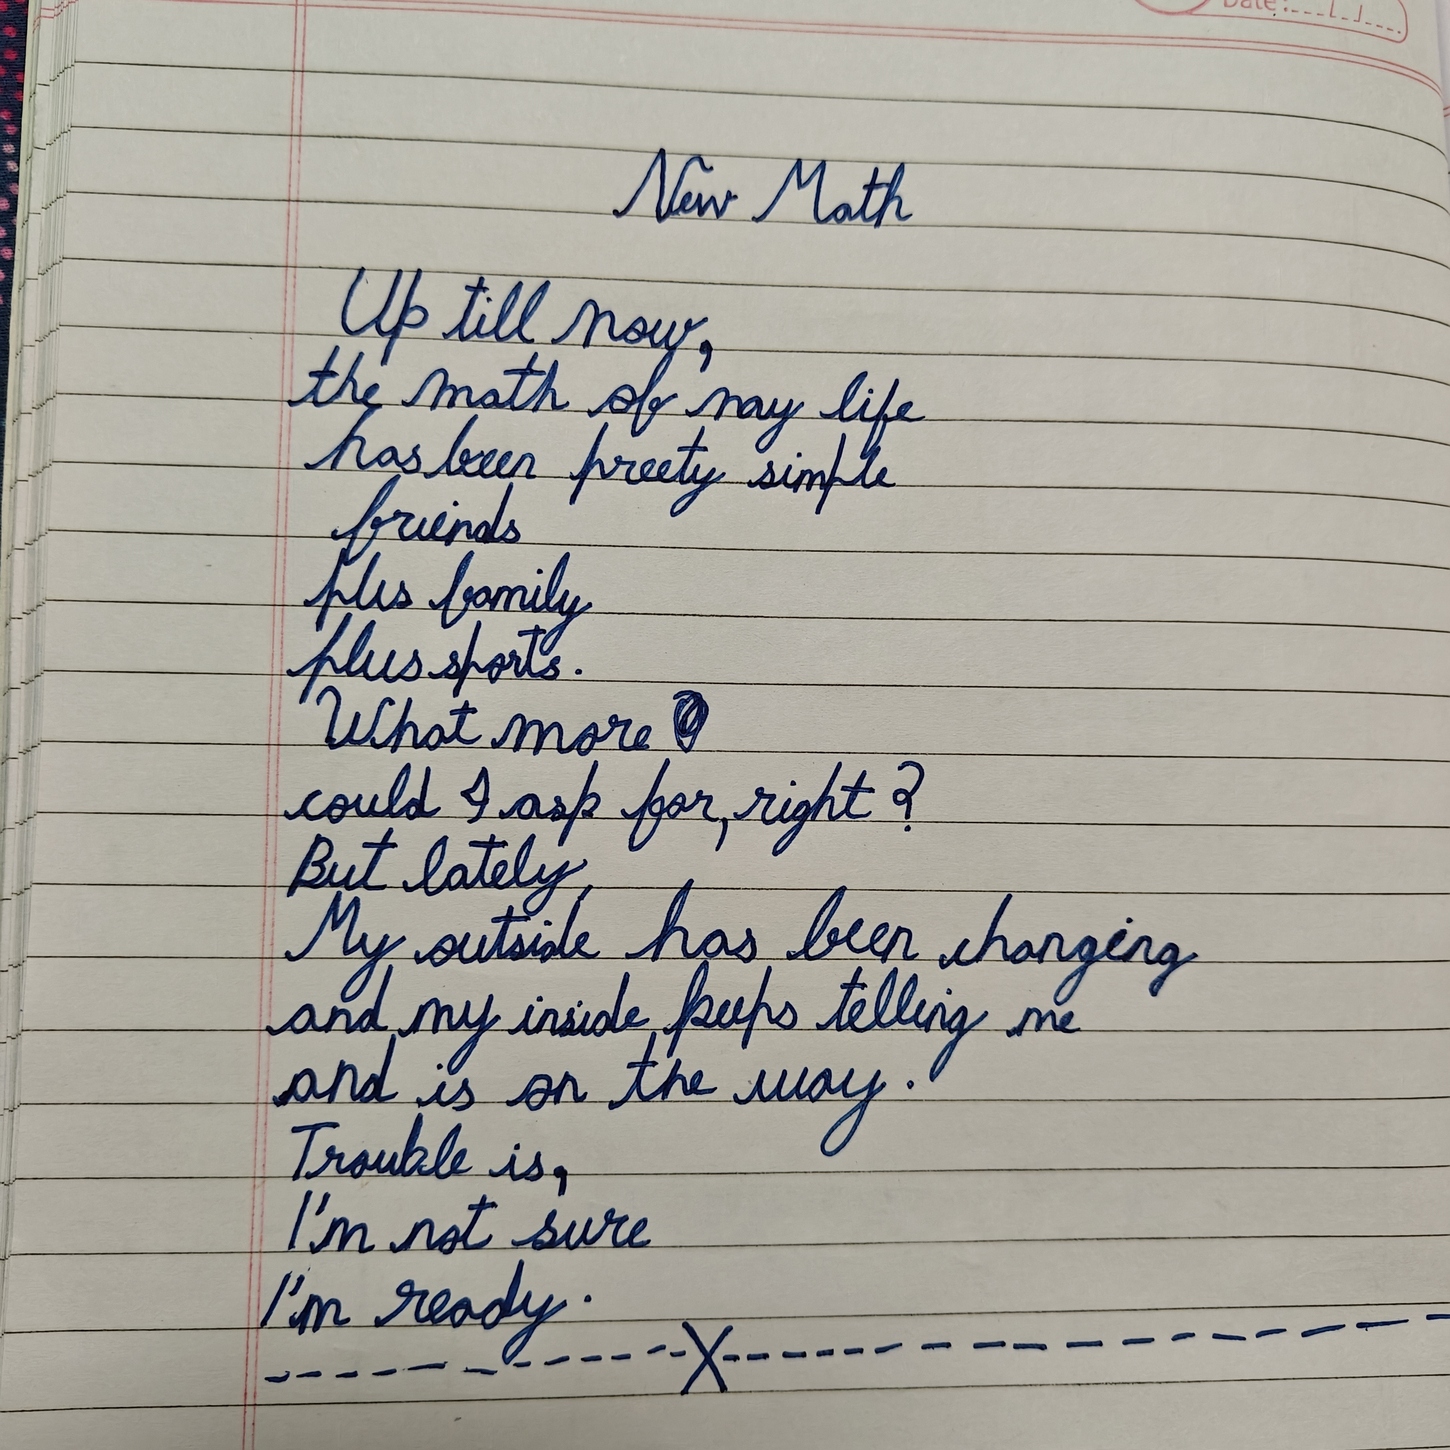 Date:
New Math
Up till now,
the math of my life
has been preety simple
friends
plus family
plus sports.
What more
could I ask for, right?
But lately,
My outside has been changing
and my inside keeps telling me
and is on the way.
Trouble is,
I'm not sure
I'm ready.
X